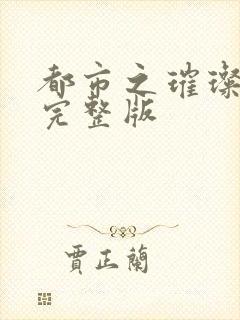 都市之璀璨
完整版
賈正蘭